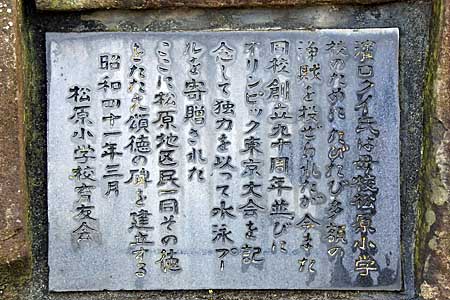 濱口タイ氏は母校松原小学
校のためにたびたび多額の
浄財を投ぜられたが今また
同校創立九十周年並びに
オリンピック東京大会を記
念して独力を以って水泳プー
ルを寄贈された
ここに松原地区民一同その徳
をたたえ頌徳の碑を建立する
昭和四十一年三月
松原小学校育友会